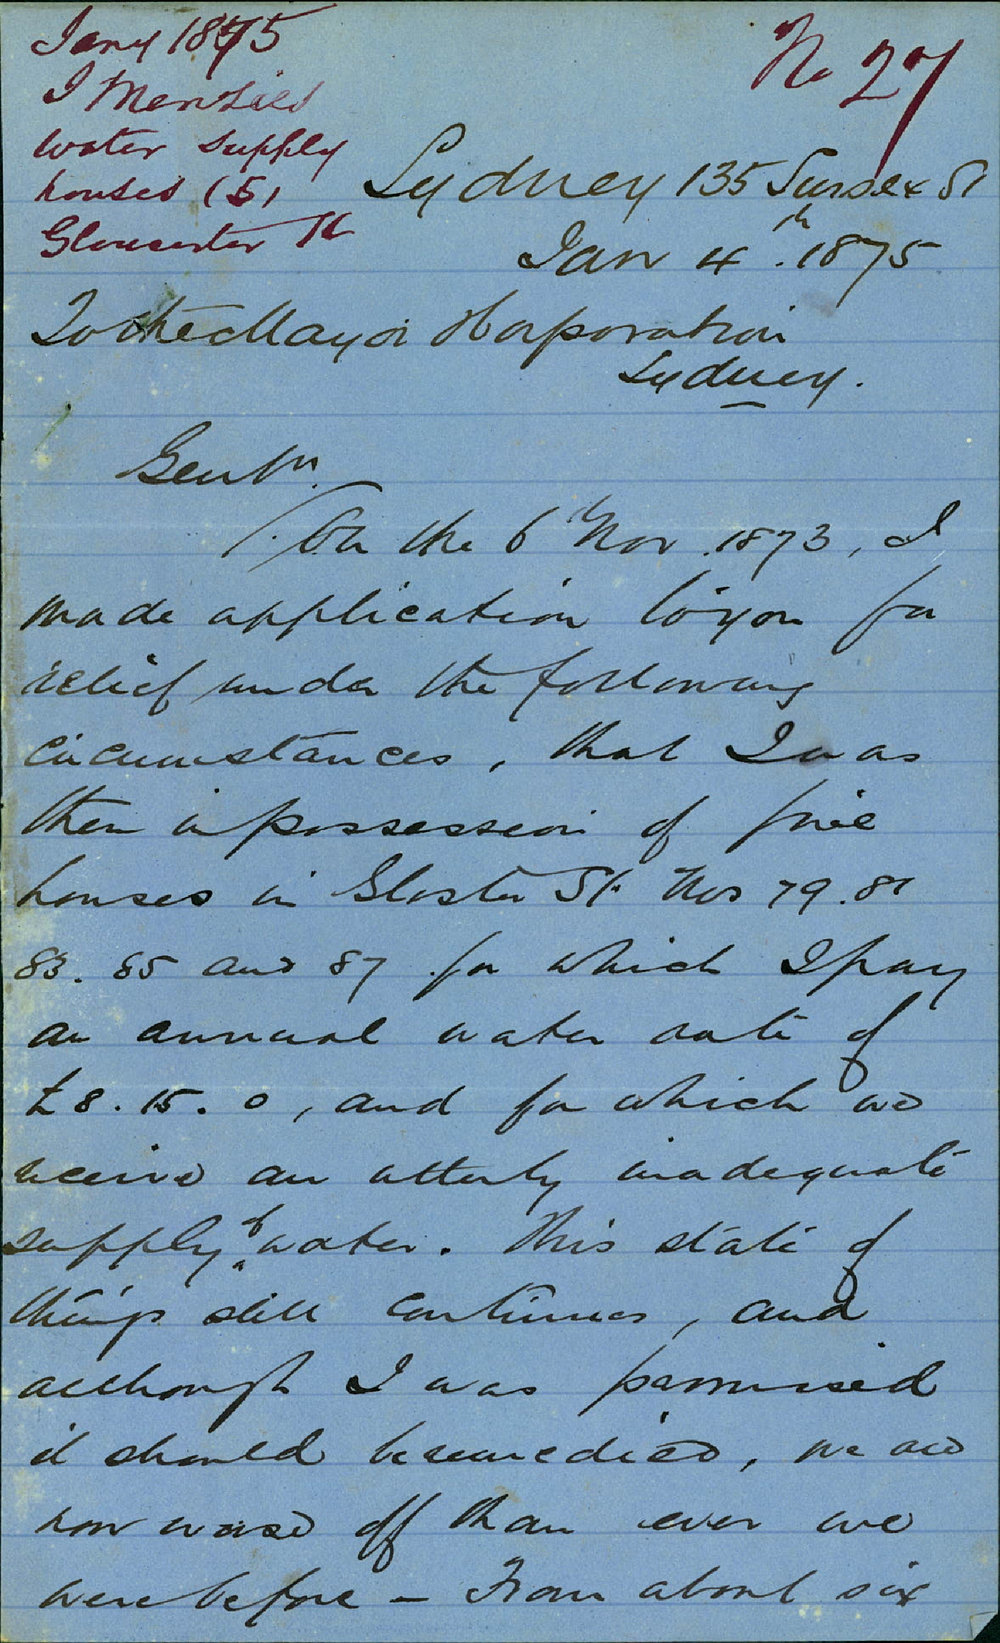 Jany 1875
J Menzies
water supply
houses (5)
Gloucester St
No 27
Sydney 135 Sussex St
Jan 4th. 1875
To the Mayor & Corporation
Sydney.
Gentn.
On the 6th Nov. 1873, I
made application to you for
relief under the following
circumstances, that I was
then in possession of five
houses in Gloster St. Nos 79. 81
83. 85 and 87 for which I pay
an annual water rate of
£8. 15. 0, and for which we
receive an utterly inadequate
supply of water. This state of
things still continues, and
although I was promised
it should be remedied, we are
now worse off than ever we
were before - From about six